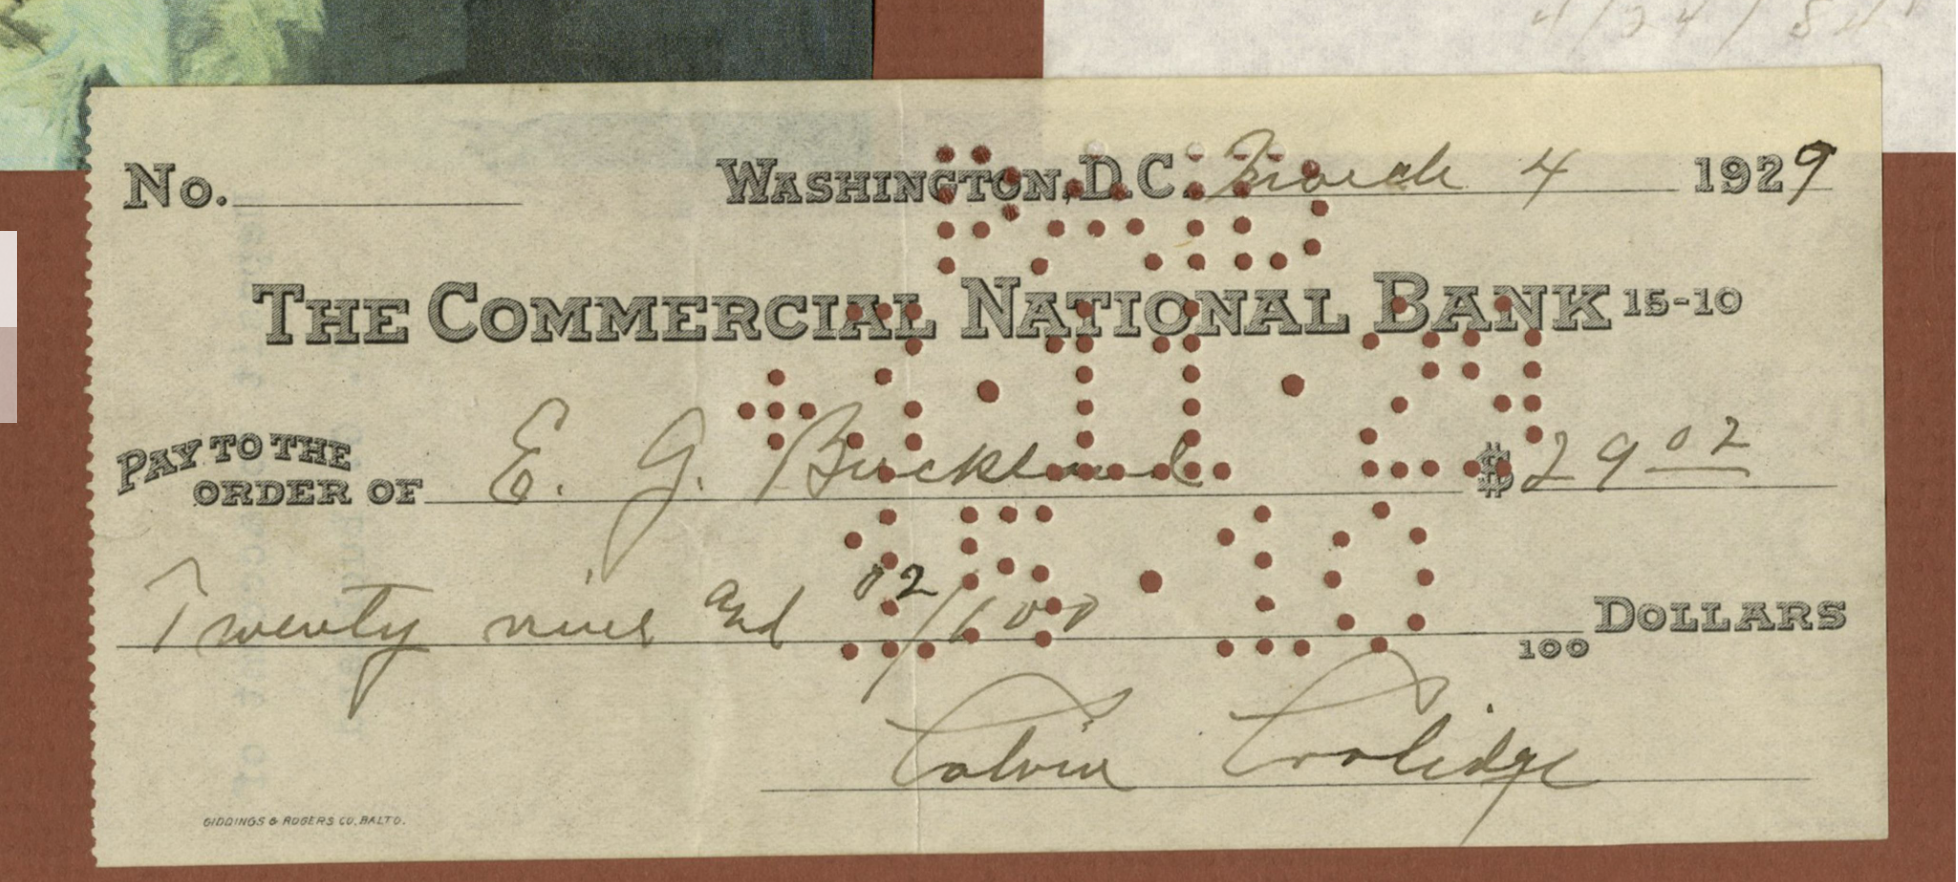 4/24/84
No. WASHINGTON, D.C. March 4 1929
THE COMMERCIAL NATIONAL BANK 15-10
PAID
3-11-29
15-10
PAY TO THE
ORDER OF E. G. Buckland $29 02
Twenty nine and 02/100 100 DOLLARS
Calvin Coolidge
GIDDINGS & ROGERS CO. BALTO.